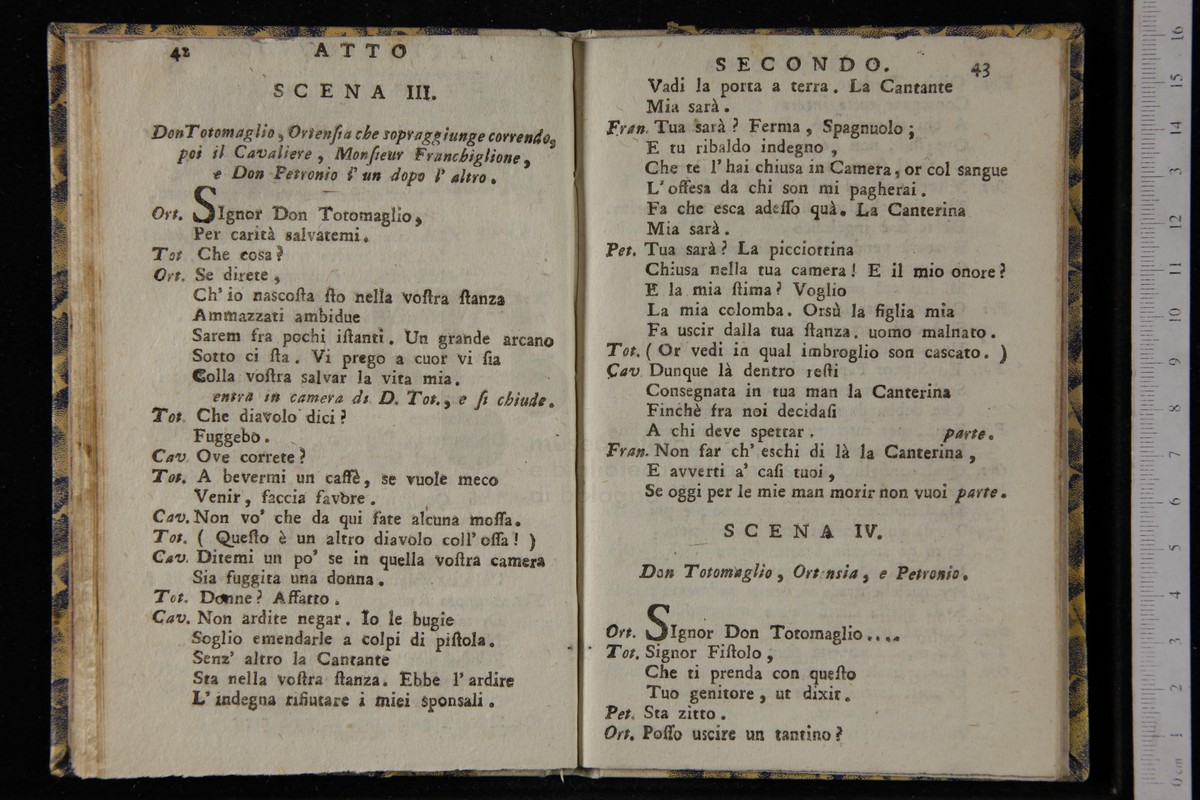 42 ATTO
SCENA III.
Don Totomaglio, Ortenſia che sopraggiunge correndo,
poi il Cavaliere, Monſieur Franchiglione,
e Don Petronio l' un dopo l' altro.
Ort. SIgnor Don Totomaglio,
Per carità salvatemi.
Tot Che cosa?
Ort. Se direte,
Ch' io nascoſta ſto nella voſtra ſtanza
Ammazzati ambidue
Sarem fra pochi iſtanti. Un grande arcano
Sotto ci ſta. Vi prego a cuor vi ſia
Colla voſtra salvar la vita mia.
entra in camera di D. Tot., e ſi chiude.
Tot. Che diavolo dici?
Fuggebo.
Cav. Ove correte?
Tot. A bevermi un caffè, se vuole meco
Venir, faccia favore.
Cav. Non vo' che da qui fate alcuna moſſa.
Tot. ( Queſto è un altro diavolo coll' oſſa! )
Cav. Ditemi un po' se in quella voſtra camera
Sia fuggita una donna.
Tot. Donne? Affatto.
Cav. Non ardite negar. Io le bugie
Soglio emendarle a colpi di piſtola.
Senz' altro la Cantante
Sta nella voſtra ſtanza. Ebbe l' ardire
L' indegna rifiutare i miei sponsali.
SECONDO. 43
Vadi la porta a terra. La Cantante
Mia sarà.
Fran. Tua sarà? Ferma, Spagnuolo;
E tu ribaldo indegno,
Che te l' hai chiusa in Camera, or col sangue
L' offesa da chi son mi pagherai.
Fa che esca adeſſo quà. La Canterina
Mia sarà.
Pet. Tua sarà? La picciottina
Chiusa nella tua camera! E il mio onore?
E la mia ſtima? Voglio
La mia colomba. Orsù la figlia mia
Fa uscir dalla tua ſtanza, uomo malnato.
Tot. ( Or vedi in qual imbroglio son cascato. )
Cav Dunque là dentro reſti
Consegnata in tua man la Canterina
Finchè fra noi decidaſi
A chi deve spettar. parte.
Fran. Non far ch' eschi di là la Canterina,
E avverti a' caſi tuoi,
Se oggi per le mie man morir non vuoi parte.
SCENA IV.
Don Totomaglio, Ortensia, e Petronio.
Ort. SIgnor Don Totomaglio....
Tot. Signor Fiſtolo,
Che ti prenda con queſto
Tuo genitore, ut dixit.
Pet. Sta zitto.
Ort. Poſſo uscire un tantino?